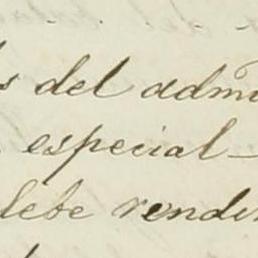 s del admi
especial
debe rendir